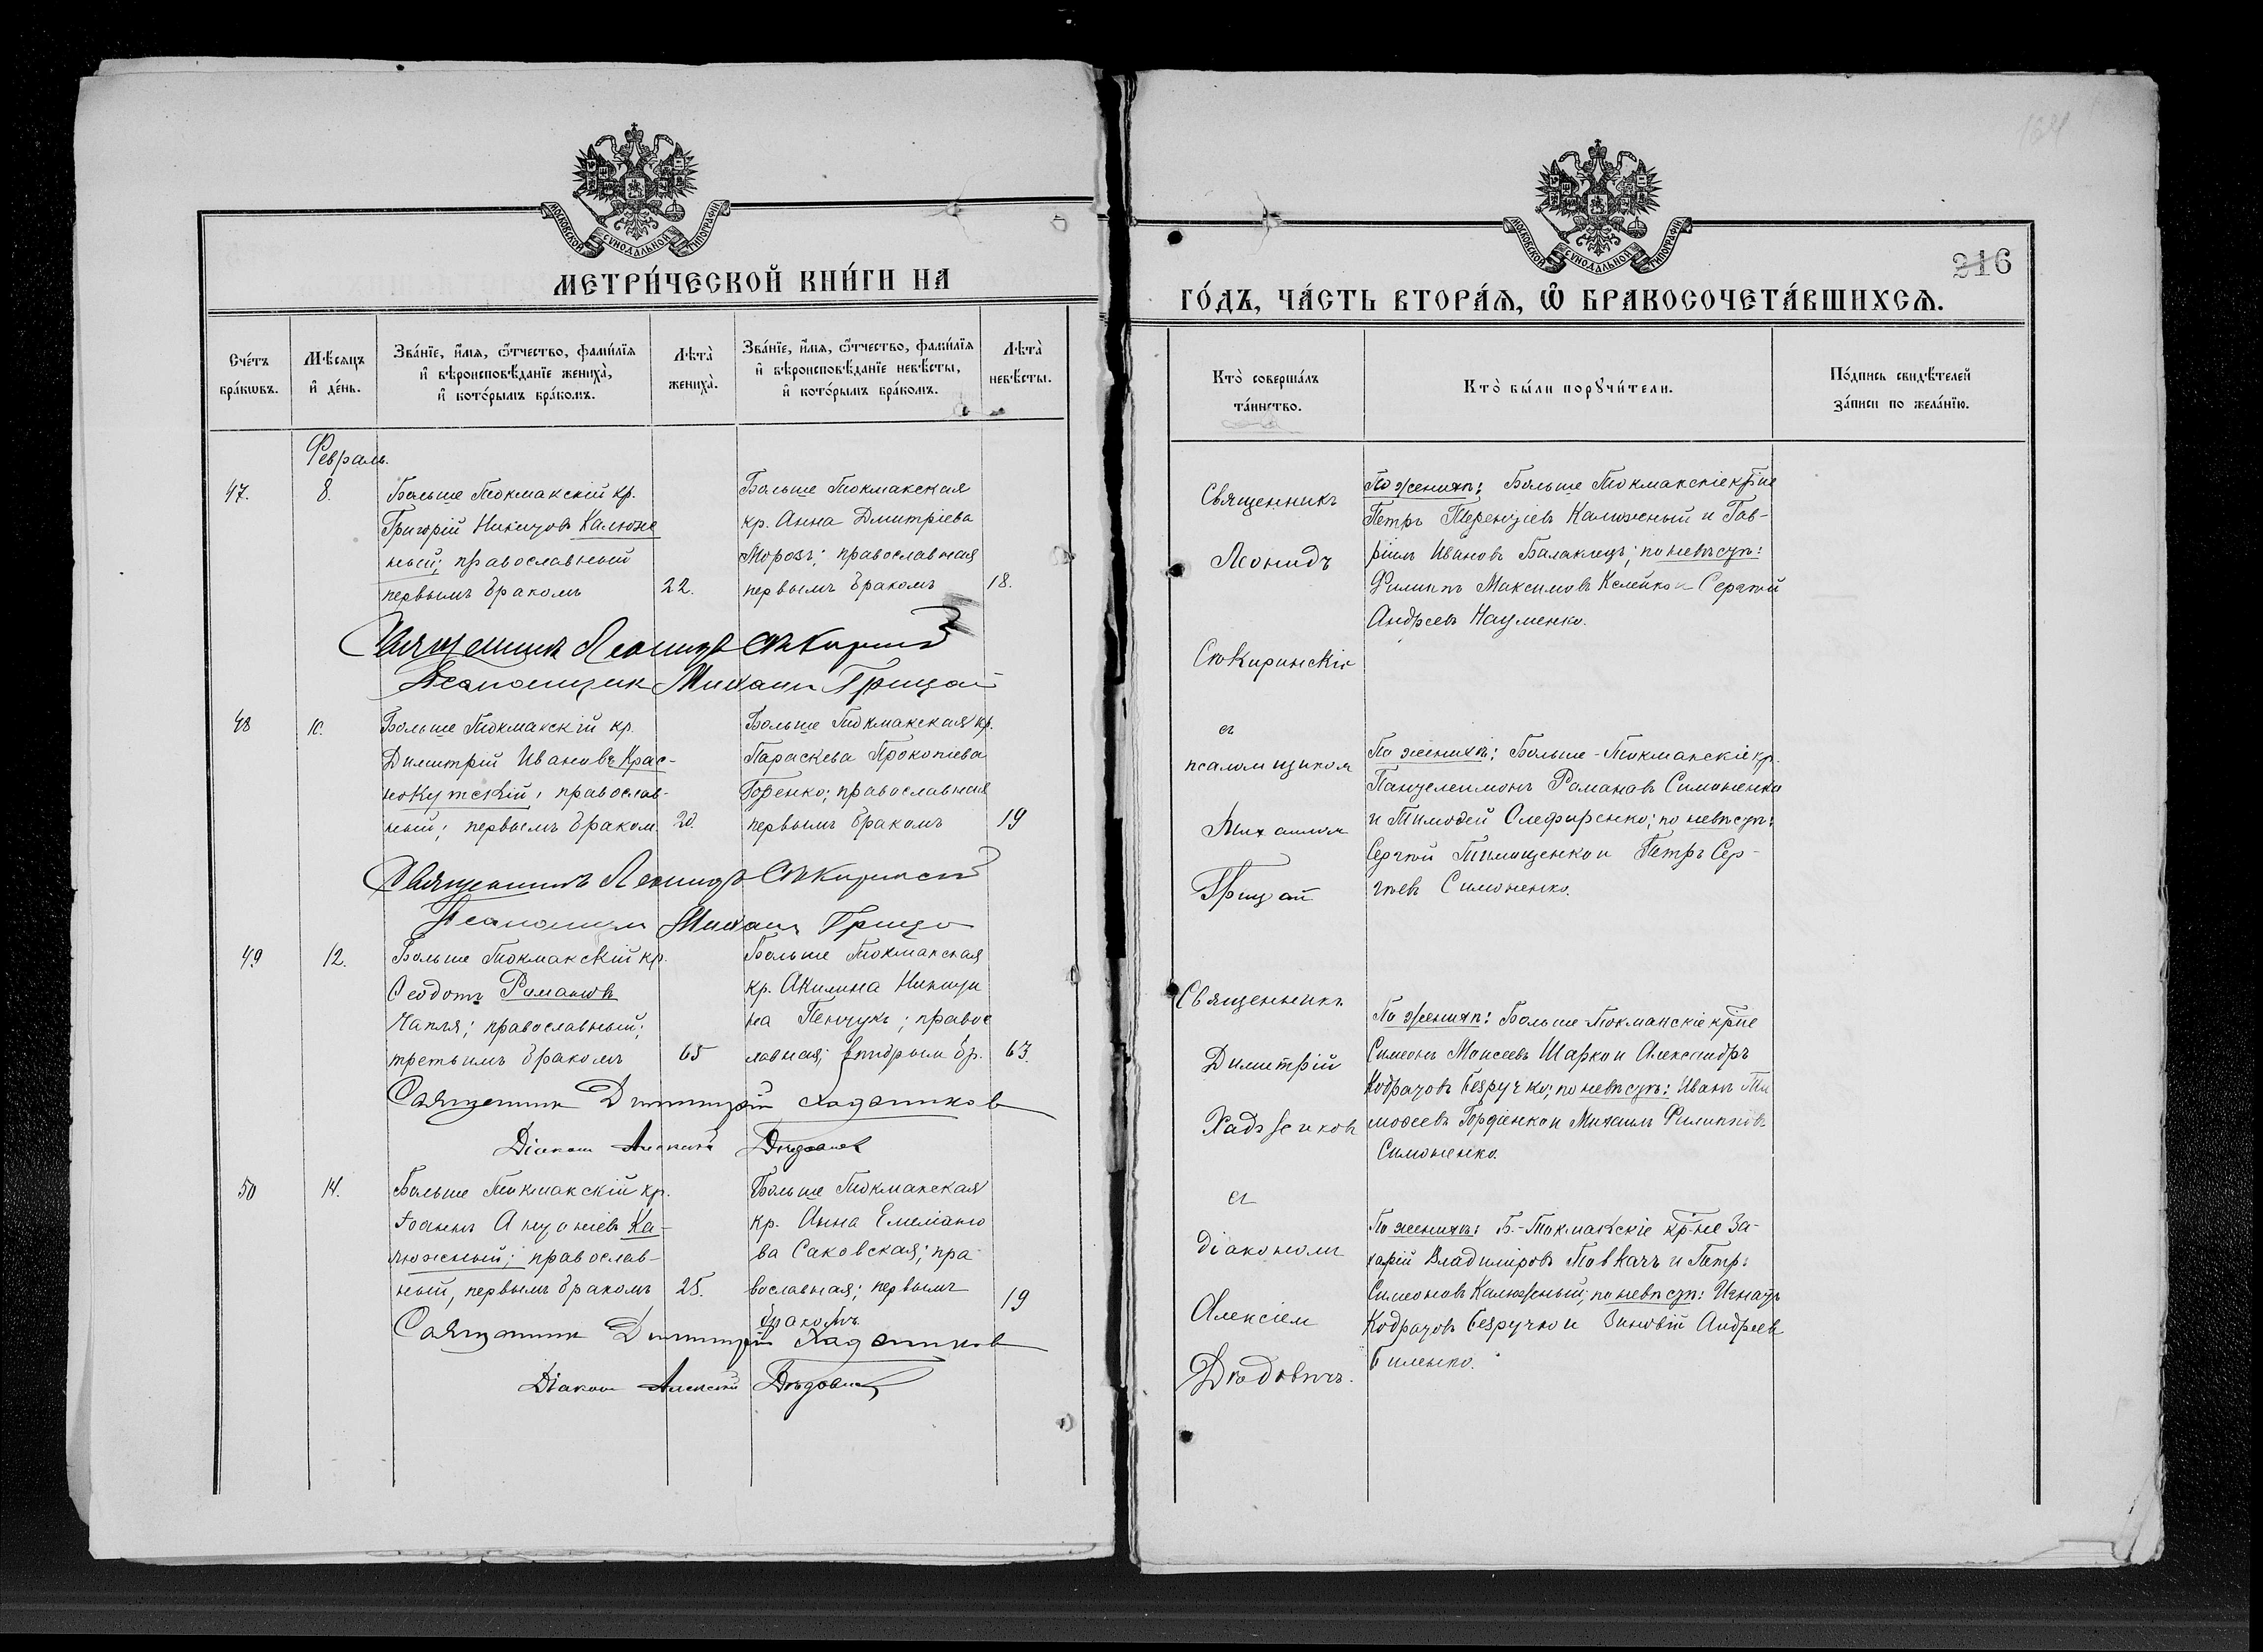 МОСКОВСКОЙ СѴНОДАЛЬНОЙ ТИПОГРАФІИ
МЕТРИ́ЧЕСКОЙ КНИ́ГИ НА
Сче́тъ бра́кωвъ.
Мѣ́сяцъ и҆ де́нь.
Зва́нїе, и҆́мѧ, ѻ҆́тчество, фами́лїѧ
и҆ вѣроисповѣ́данїе жениха̀,
и҆ кото́рымъ бра́комъ.
Лѣта̀ жениха̀.
Зва́нїе, и҆́мѧ, ѻ҆́тчество, фами́лїѧ
и҆ вѣроисповѣ́данїе невѣ́сты,
и҆ кото́рымъ бра́комъ.
Лѣта̀ невѣ́сты.
Февраль.
47.
8.
Больше Токмакскій кр.
Григорій Никитовъ Калюж
ный; православный
первымъ бракомъ
22.
Больше Токмакская
кр. Анна Дмитріева
Морозъ; православная
первымъ бракомъ
18.
Священникъ Леонидъ Сѣкиринскій
Псаломщик Михаил Грицай
48
10.
Больше Токмакскій кр.
Димитрій Ивановъ Крас-
нокутскій; православ-
ный; первымъ браком
20.
Больше Токмакская кр.
Параскева Прокопіева
Горенко; православная
первымъ бракомъ
19
Священникъ Леонидъ Сѣкиринскій
Псаломщик Михаил Грицай
49
12.
Больше Токмакскій кр.
Ѳеодотъ Романовъ
Чапля; православный;
третьимъ бракомъ
65
Больше Токмакская
кр. Акилина Никити
на Пенчукъ; правос
лавная; вторым бр.
63.
Священник Димитрій Хаджиновъ
Діаконъ Алексій Дѣдовичъ
50
14.
Больше Токмакскій кр.
Іоаннъ Антоніевъ Ка-
люжный; православ-
ный, первымъ бракомъ
25.
Больше Токмакская
кр. Анна Емеліано
ва Саковская; пра-
вославная; первымъ
бракомъ
19
Священник Димитрій Хаджиновъ
Діаконъ Алексій Дѣдовичъ
МОСКОВСКОЙ СѴНОДАЛЬНОЙ ТИПОГРАФІИ
216
ГО́ДЪ, ЧА́СТЬ ВТОРА́Ѧ, Ѽ БРАКОСОЧЕТА́ВШИХСѦ.
Кто̀ соверша́лъ та́инство.
Кто̀ бы́ли порꙋчи́тели.
По́дпись свидѣ́телей за́писи по жела́нїю.
Священникъ
Леонидъ
Сѣкиринскій
съ
псаломщикомъ
Михаиломъ
Грицай
По женихѣ: Больше Токмакскіе кр-не
Петръ Терентіевъ Калюжный и Гав-
ріилъ Ивановъ Балаклецъ; по невѣстѣ:
Филиппъ Максимовъ Клейко и Сергѣй
Андреевъ Науменко.
По женихѣ: Больше-Токмакскіе кр.
Пантелеимонъ Романовъ Симоненко
и Тимоѳей Олефиренко; по невѣстѣ:
Сергѣй Тимощенко и Петръ Сер-
гѣевъ Симоненко.
Священникъ
Димитрій
Хаджиновъ
съ
діакономъ
Алексіем
Дѣдовичъ.
По женихѣ: Больше-Токмакскіе кр-не
Симеонъ Моисеевъ Шарко и Александръ
Кодратовъ Безручко; по невѣстѣ: Иванъ Ти
моѳеевъ Гордіенко и Михаилъ Филипповъ
Симоненко.
По женихѣ: Б.-Токмакскіе кр-не За-
харій Владиміровъ Товкачъ и Петръ
Симеоновъ Калюжный; по невѣстѣ: Игнатъ
Кодратовъ Безручко и Зиновій Андреевъ
Биленко.